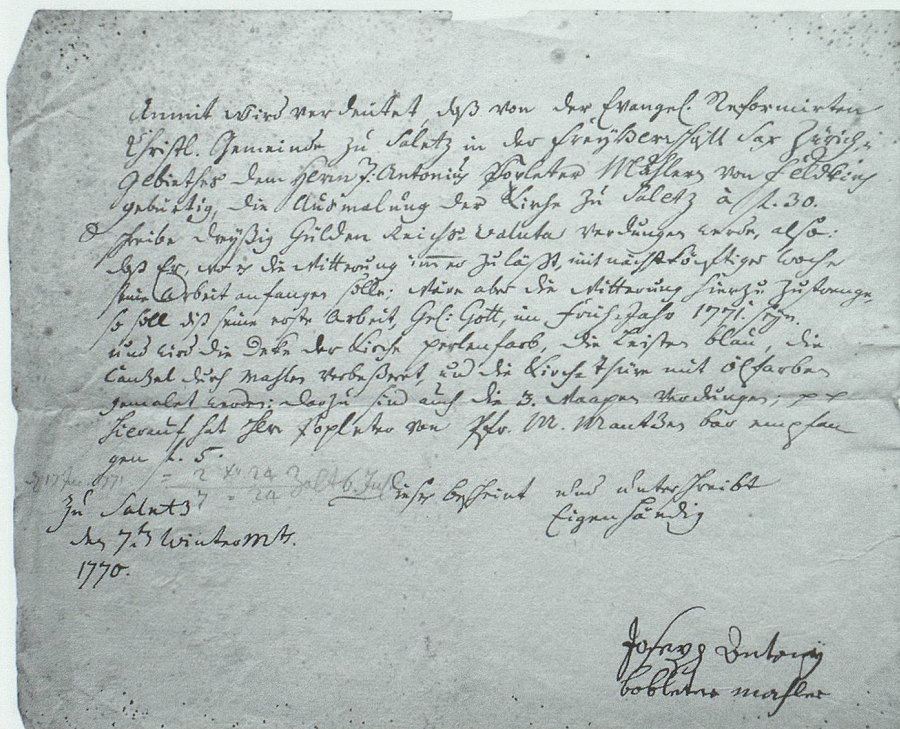 Anmit wird verdeutet, daß von der Evangel. Reformirten
Christl. Gemeinde zu Saletz in der Freyherrschafft Sax Zürich:
Gebiethes dem Herrn J: Antonius Popleter Mahlern von Feldkirch
gebürtig, die Ausmalung der Kirche zu Saletz à f. 30.
schreibe dreyßig Gulden Reichs: valuta verdungen werde, also:
daß Er, wo es die Witterung immer zuläßt, mit nächstkünftiger woche
seine Arbeit anfangen solle; Wäre aber die Witterung hierzu zustrenge,
so soll diß seine erste Arbeit, Gel: Gott, im Früh-Jahr 1771. seyn.
und wird die Deke der Kirche perlenfarb, die Leisten blau, die
Canzel durch mahlen verbeßeret, und die Kirche Thüre mit ölfarben
gemalet werden: darzu sind auch die 3. Waapen verdungen; pp
Hierauf hat Herr Popleter von Pfr. M. Mantzen bar empfan
gen f. 5.
= 2 xr 24
zalt 6 Jul
dieser bescheint und unterschreibt
Eigenhändig
Zu Saletz
den 7.th WinterMt.
1770.
Joseph Antony
bobleter mahler